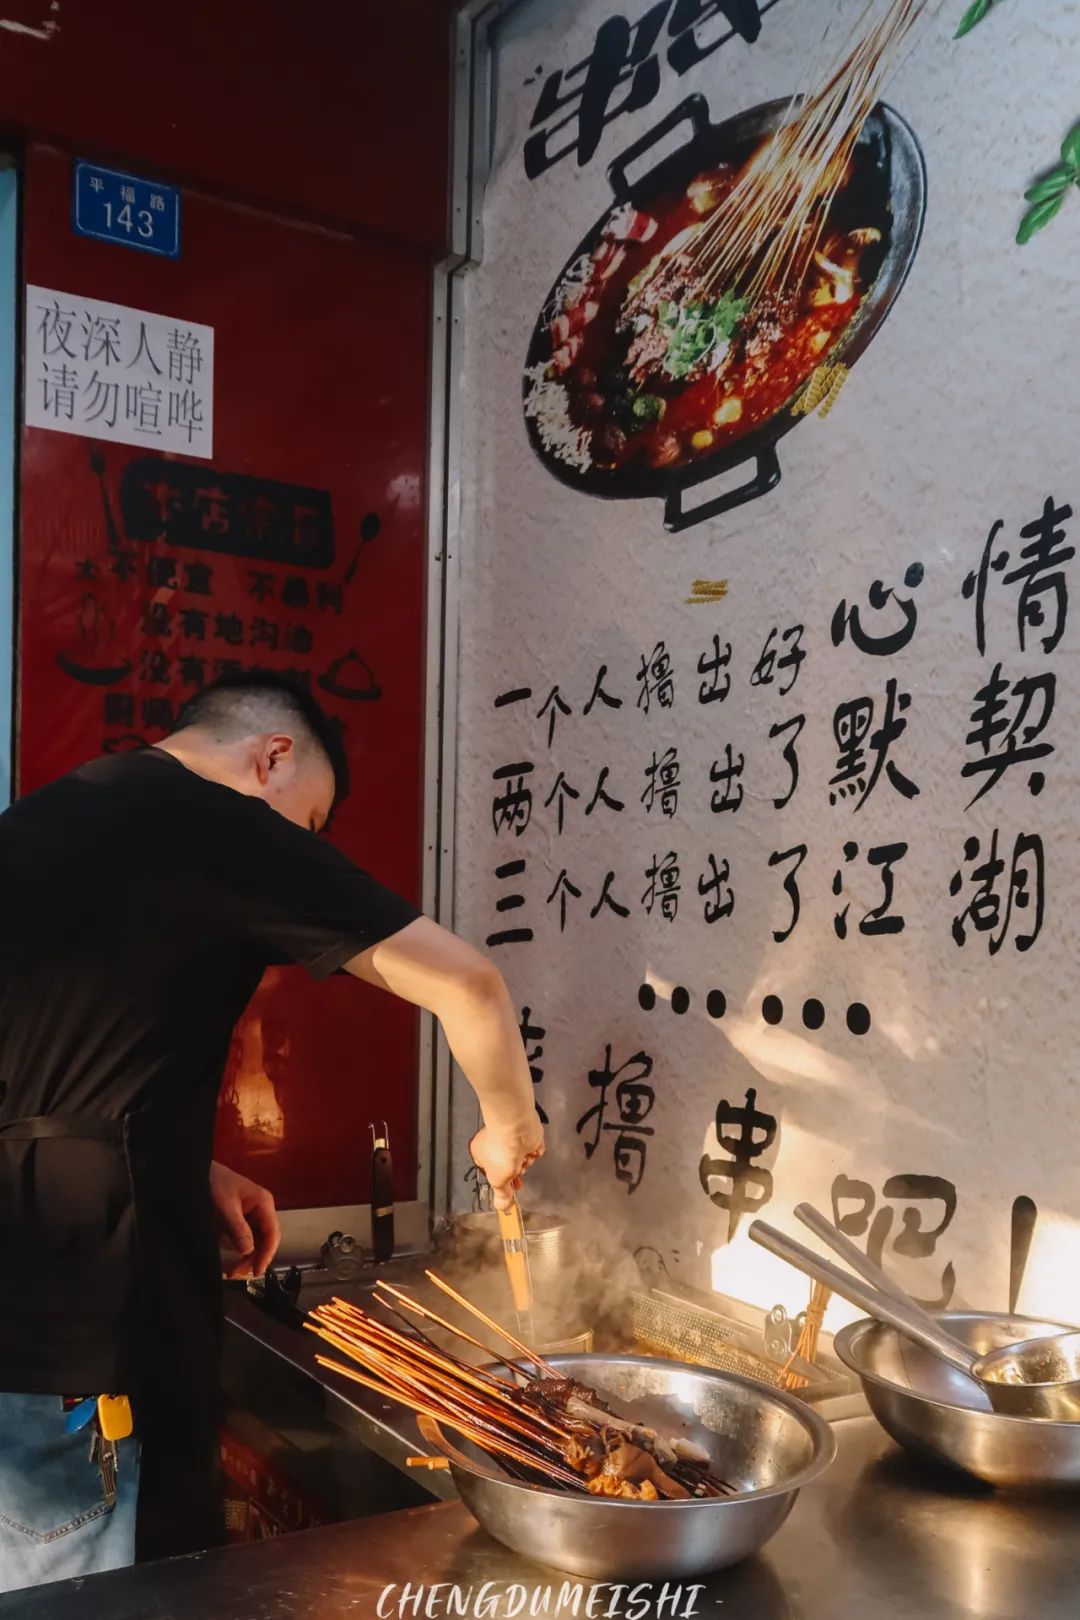 串
平福路
143
夜深人静
请勿喧哗
本店宗旨
不便宜 不暴利
没有地沟油
没有
厨师
一个人撸出好心情
两个人撸出了默契
三个人撸出了江湖
••••••
撸串吧!
CHENGDUMEISHI